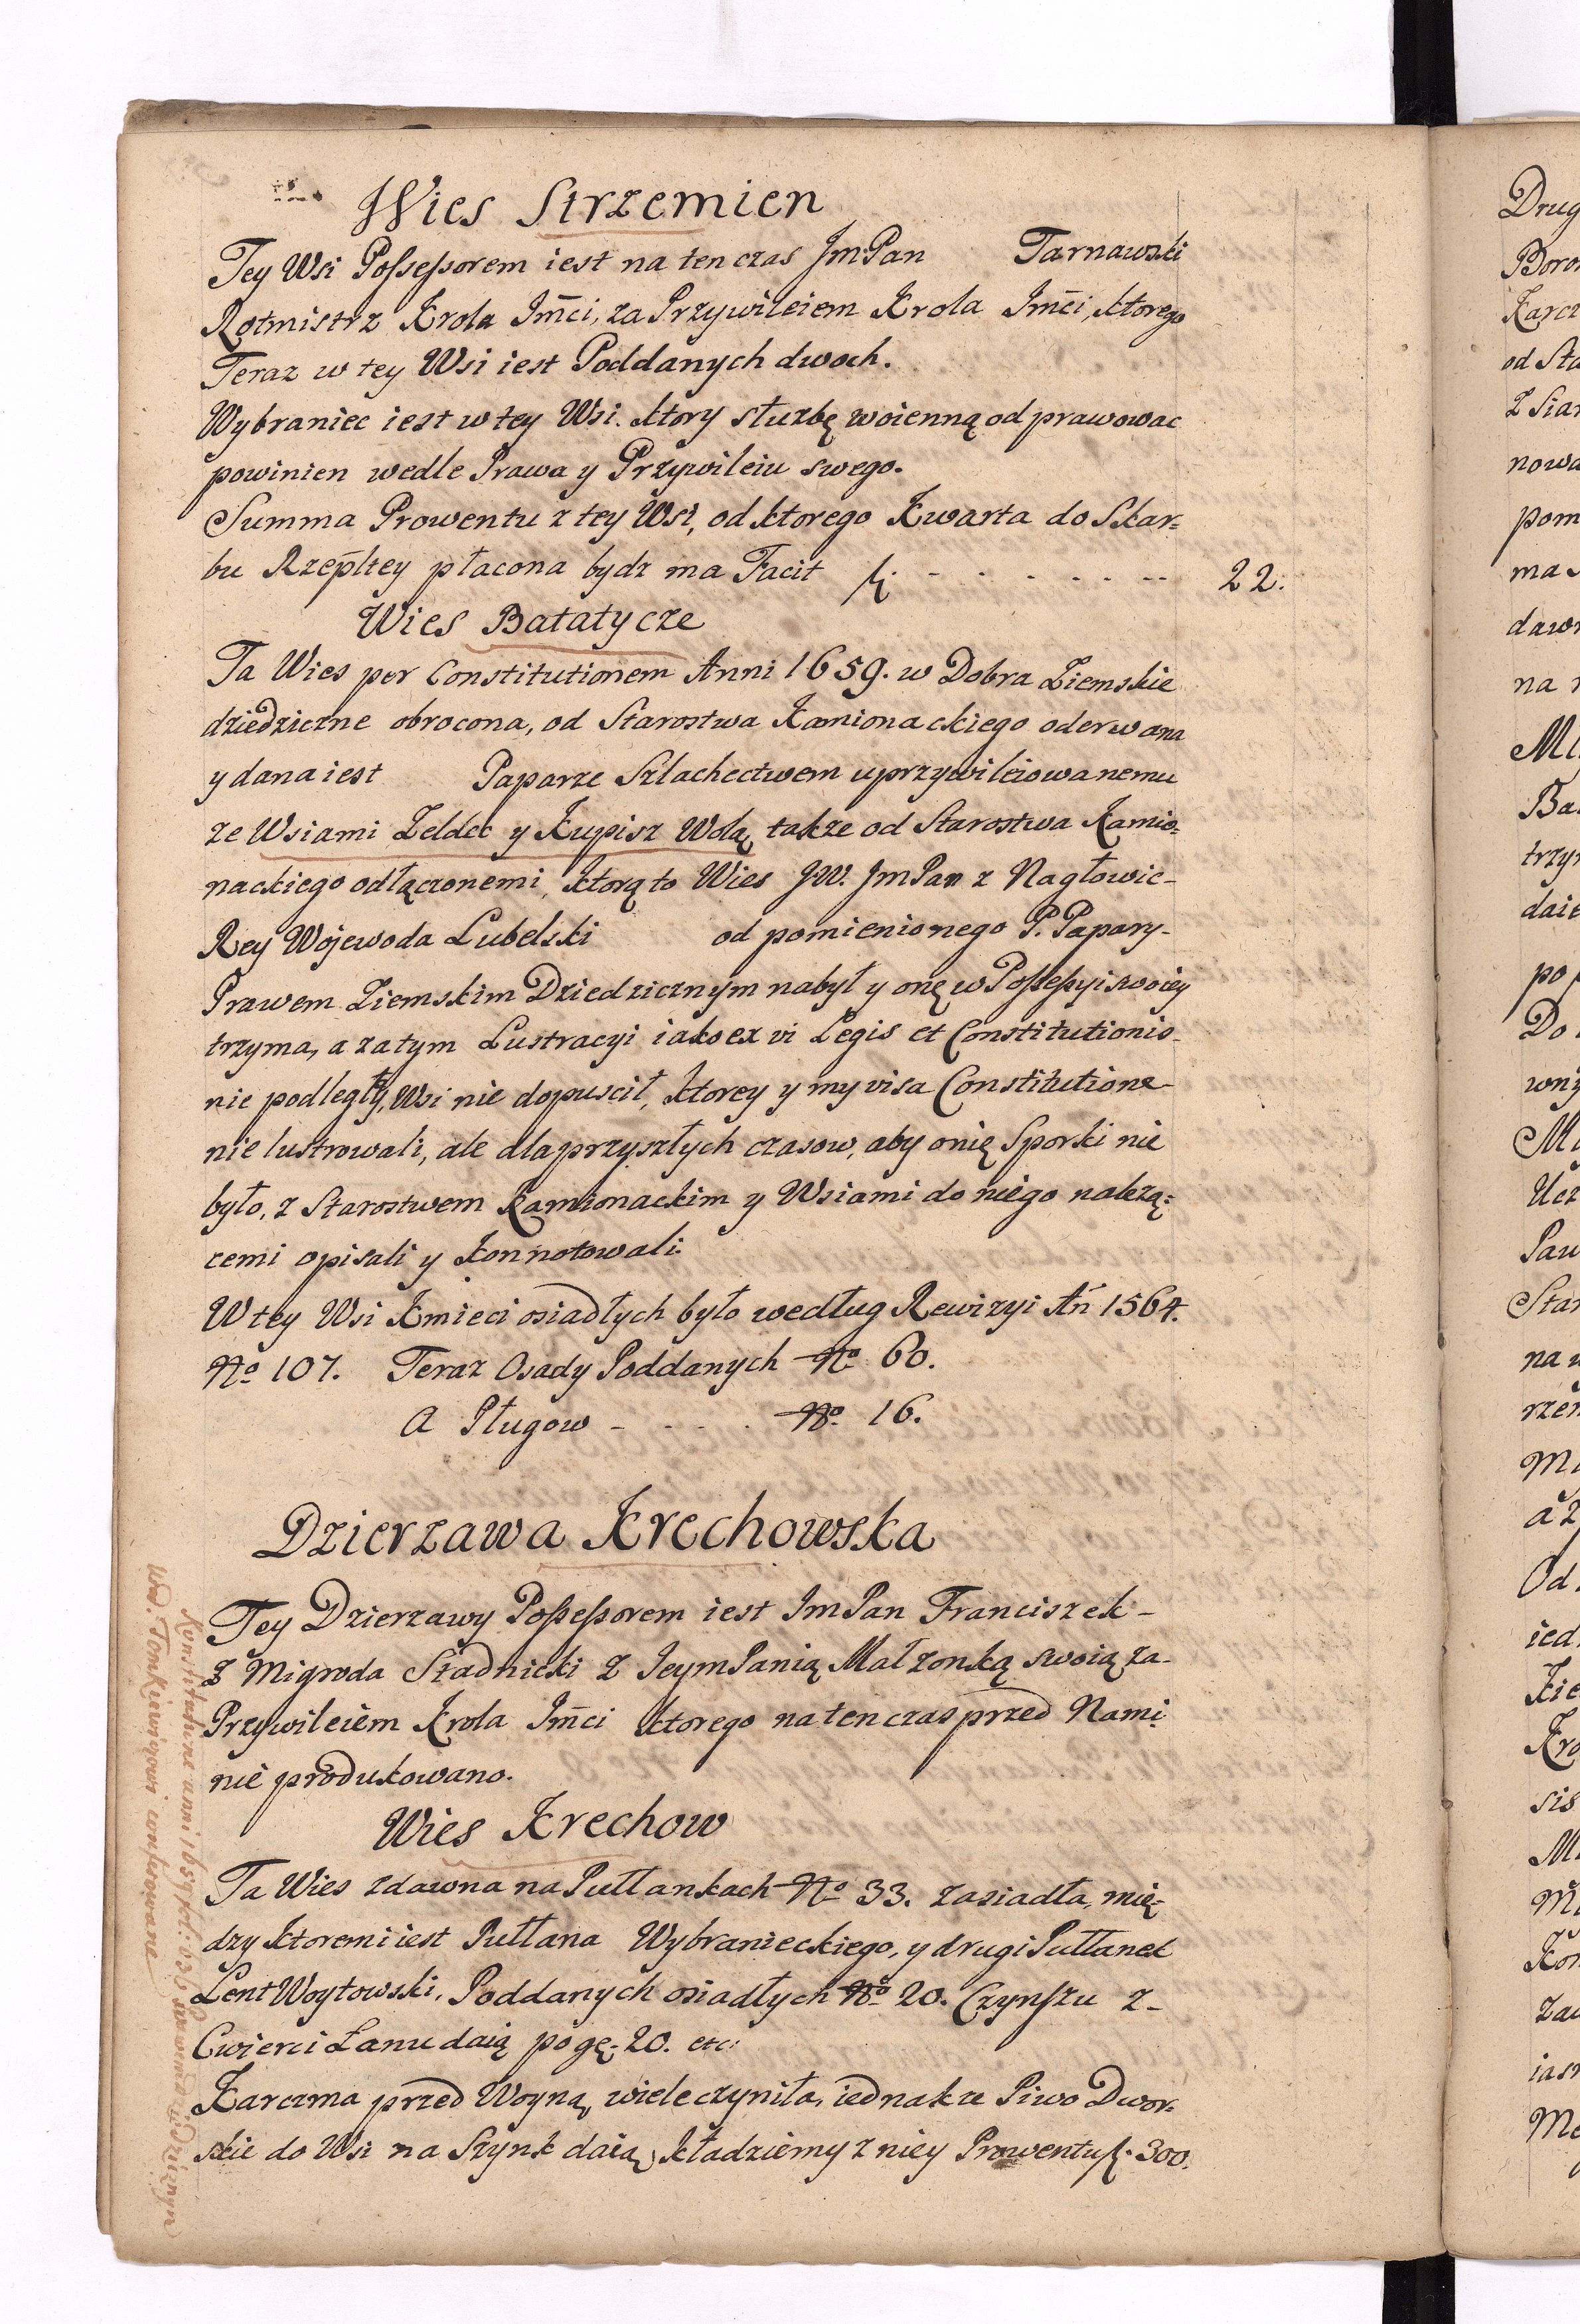 Wies Strzemien
Tey Wsi Possessorem iest na ten czas JmPan Tarnawski
Rotmistrz Krola Jmci, za Przywileiem Krola Jmci, ktorego
Teraz w tey Wsi iest Poddanych dwoch.
Wybraniec iest w tey Wsi. ktory służbę woienną odprawowac
powinien wedle Prawa y Przywileiu swego.
Summa Prowentu z tey Wsi, od ktorego Kwarta do Skar=
bu Rzepltey płacona bydz ma Facit f. - - - - - - - 22.
Wies Batatycze
Ta Wies per Constitutionem Anni 1659. w Dobra Ziemskie
dziedziczne obrocona, od Starostwa Kamionackiego oderwana
y dana iest Paparze Szlachectwem uprzywileiowanemu
ze Wsiami Zeldec y Kupisz Wolą, takze od Starostwa Kamio=
nackiego odłączonemi, ktorą to Wies J.W. JmPan z Nagłowic-
Rey Wojewoda Lubelski od pomienionego P. Papary-
Prawem Ziemskim Dziedzicznym nabył y onę w Possessyi swoiey
trzyma, a zatym Lustracyi iako ex vi Legis et Constitutionis-
nie podległy, Wsi nie dopuscił, ktorey y my visa Constitutione-
nie lustrowali, ale dla przyszłych czasow, aby o nię Sporki nie
było, z Starostwem Kamionackim y Wsiami do niego należą=
cemi opisali y konnotowali.
W tey Wsi Kmieci osiadłych było według Rewizyi An 1564.
No 107. Teraz Osady Poddanych No 60.
A Pługow - - - - No 16.
Dzierzawa Krechowska
Tey Dzierzawy Possessorem iest JmPan Franciszek-
z Migroda Stadnicki z JeymPanią Małzonką swoią za-
Przywileiem Krola Jmci ktorego na ten czas przed Nami
nie produkowano.
Wies Krechow
Ta Wies zdawna na Pułłankach No 33. zasiadła, mię=
dzy ktoremi iest Pułłana Wybranieckiego, y drugi Pułłanek
Lent Woytowski, Poddanych osiadłych No 20. Czynszu z-
Cwierci Łanu daią po gę. 20. etc:
Karczma przed Woyną, wiele czyniła, iednakze Piwo Dwor=
skie do Wsi na Szynk daią, kładziemy z niey Prowentu f. 300.
Konstitucue anni 1659 Prawem Dziedzicznym
Wd. Tomkiewiczowi conferowane
Drug
Boro
Karcz
od Sta
z Sia
nowa
pom
ma
daw
na
Ba
trzy
daie
po
Do
wny
Ucz
Paw
Star
na w
rze
Od
ied
Kie
Kro
sis
Kon
zaw
iasn